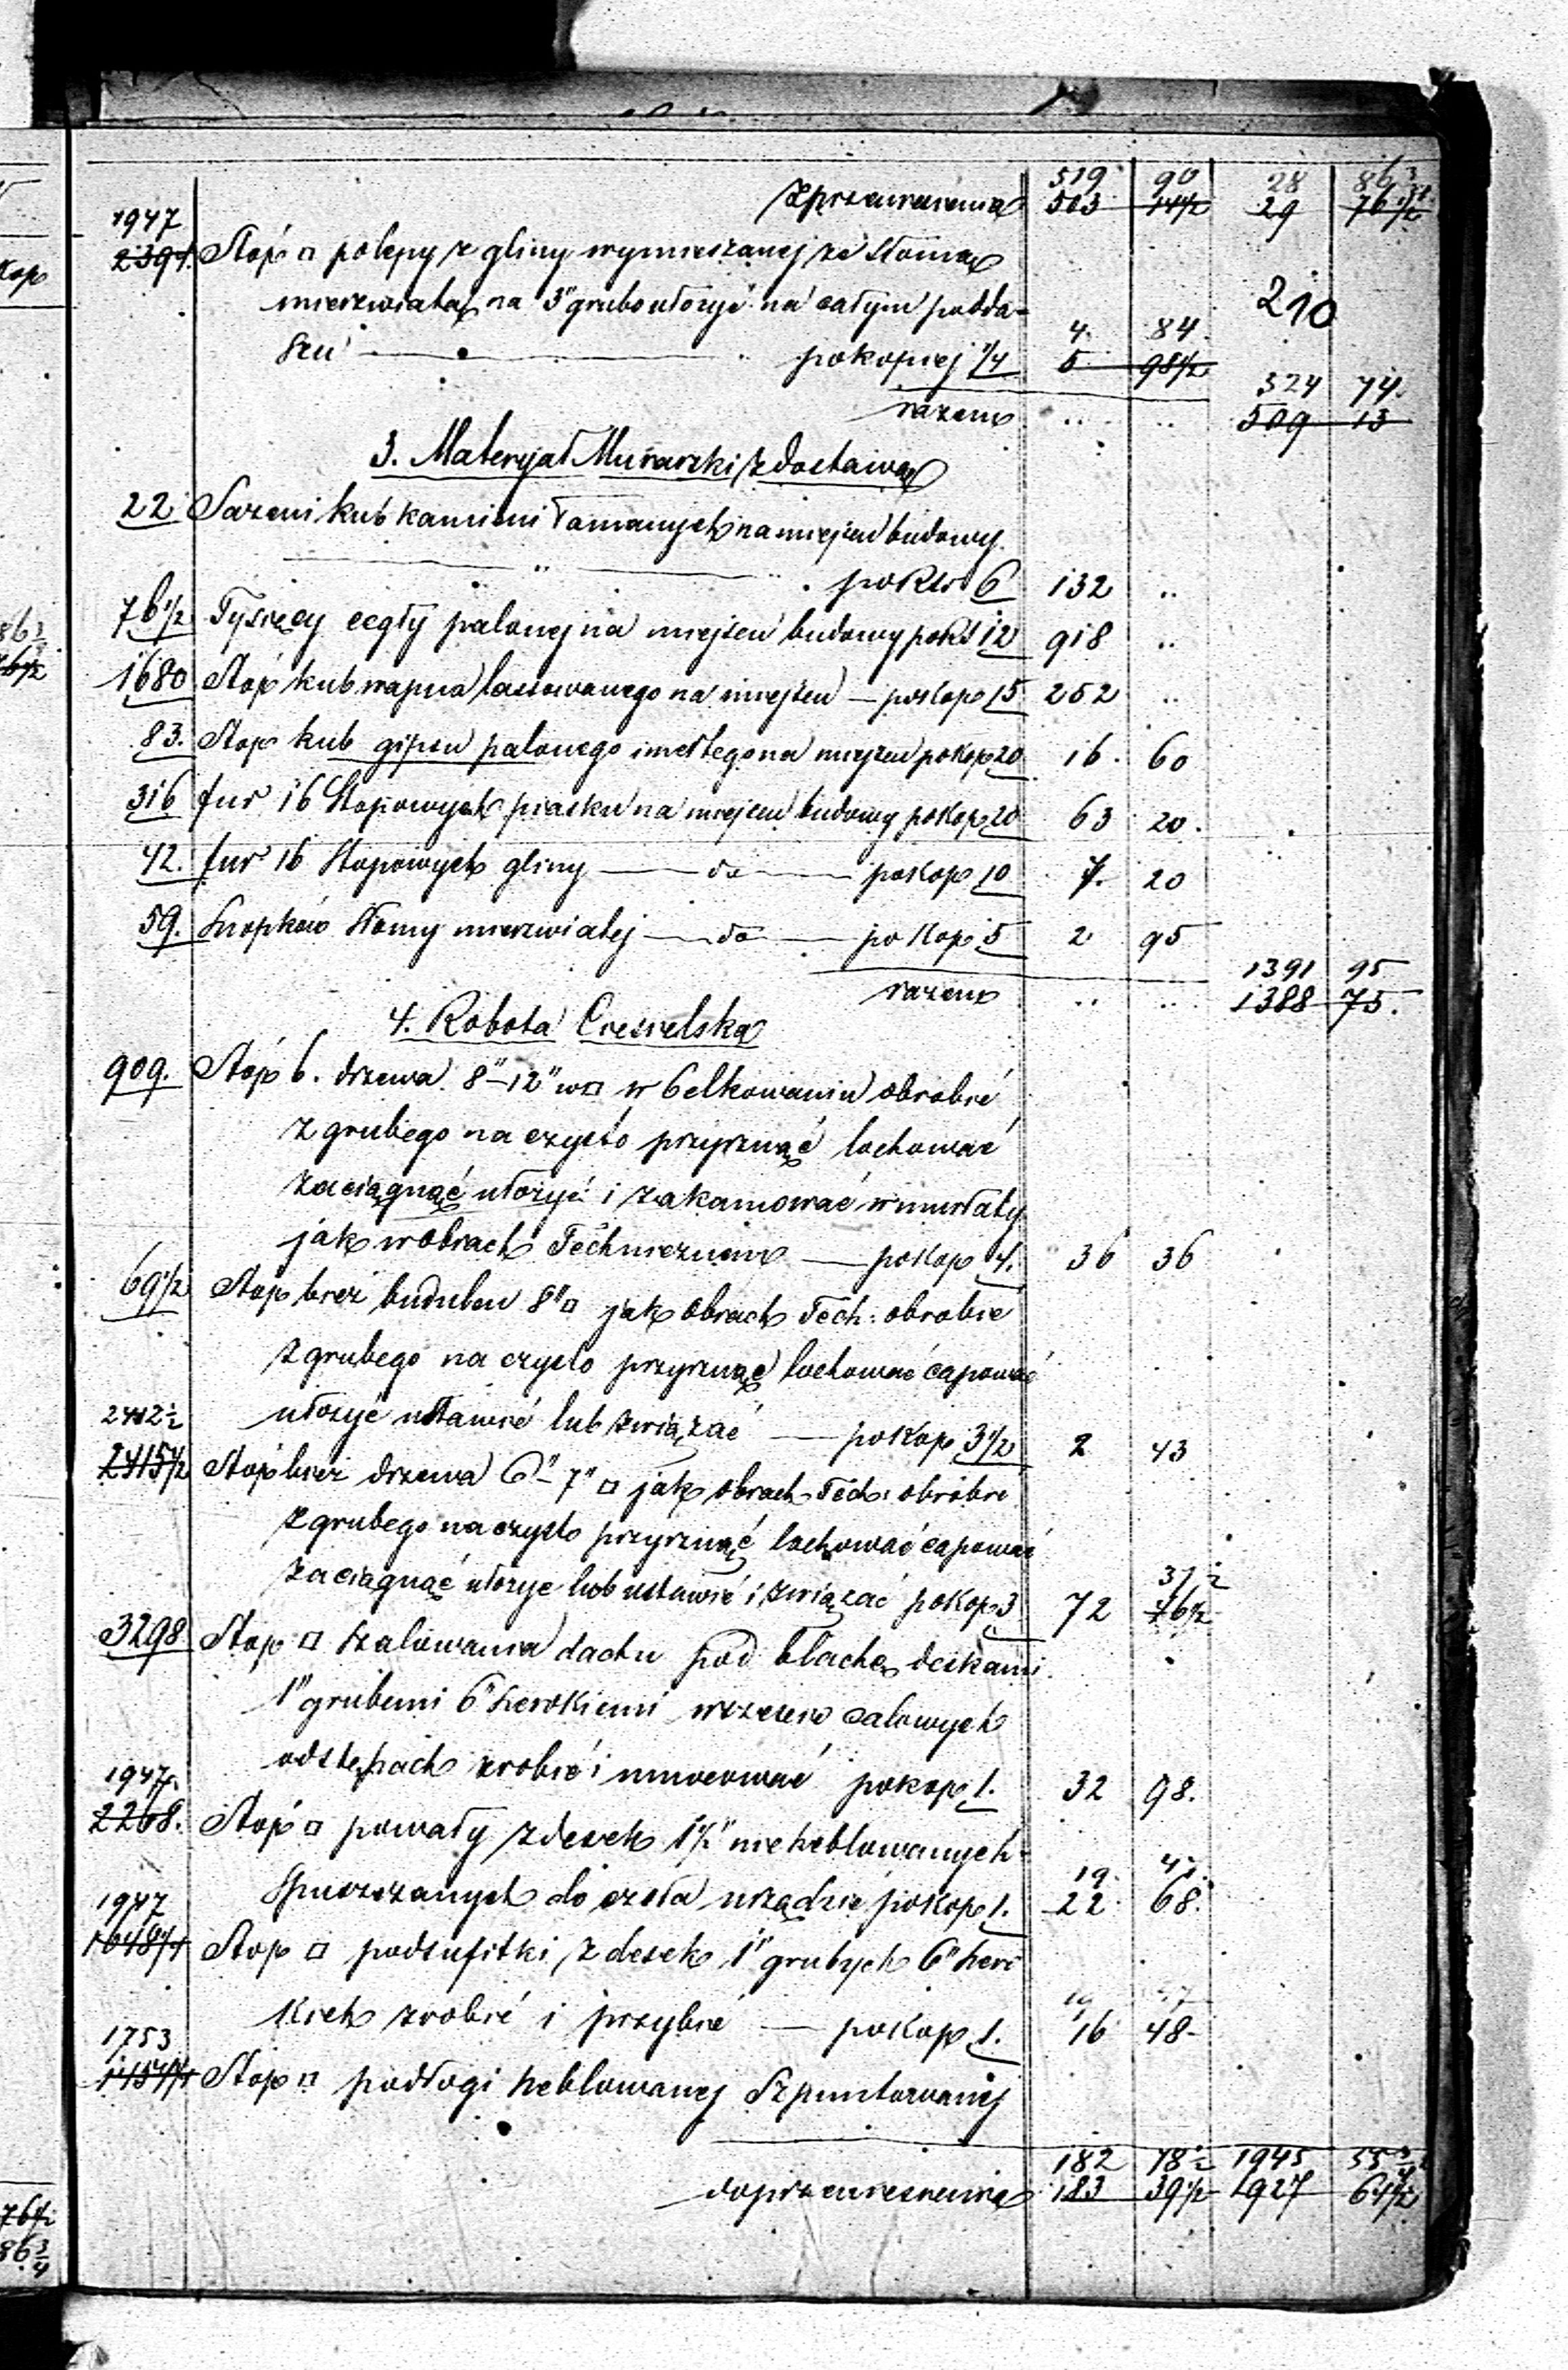 z przeniesienia 519 90 28 86 3/4
503 14 1/2 29 76 1/2
1947
2394. Stóp □ polepy z gliny wymieszanej ze słomą
mierzwiatą na 3" grubo ułożyć na całym podda-
210
szu — pokopiej 1/4 4. 84.
5 98 1/2
324 74.
razem .. .. 509 13
3. Materyał Murarski z dostawą
22 Sązeni kub kamieni łamanych na miejscu budowy
" . po Rsr 6 132 ..
76 1/2 Tysięcy cegły palonej na miejscu budowy po Rs 12 918 ..
1680 Stóp kub wapna lassowanego na miejscu — po kop 15 252 ..
83. Stop kub gipsu palonego i mełtego na miejscu po kop 20 16. 60
316 fur 16 Stopowych piasku na miejscu budowy po Kop 20 63 20.
72. fur 16 Stopowych gliny — do — po Kop 10 7. 20
59. Snopków Słomy mierzwiatej — do — po Kop 5 2 95
1391 95
razem .. .. 1388 75.
4. Robota Ciesielska
909. Stóp b. drzewa 8"–12" w □ w belkowaniu obrobić
z grubego na czysto przyrznąć lochować
zaciągnąć ułożyć i zakamować w murłaty
jak w obrach Technicznem — po Kop 4. 36 36
69 1/2 Stop bież budulcu 8" □ jak obrach Tech: obrobić
z grubego na czysto przyrznąć lochować capować
ułożyć ustawić lub związać — po Kop 3 1/2 2 43
2412 1/2
2415 1/2 Stóp bież drzewa 6"–7" □ jak obrach Tech: obrobić
z grubego na czysto przyrznąć lochować capować
37 1/2
zaciągnąć ułożyc lub ustawić i związać po Kop 3 72 46 1/2
3298 Stop □ szalowania dachu pod blachę deskami
1" grubemi 6" szerokiemi w sześciu calowych
odstępach zrobić i umocować po kop 1. 32 98.
1947.
2268. Stóp □ powały z desek 1 1/2" nieheblowanych
19. 47.
spuszczanych do czoła urządzić po Kop 1. 22 68.
1947
1648 1/4 Stop □ podsufitki z desek 1" grubych 6" szero
19 47
kich zrobić i przybić — po Kop 1. 16 48
1753
1454 1/4 Stop □ podłogi heblowanej Szpuntowanej
182 78 1/2 1945 55 3/4
do przeniesienia 183 39 1/2 1927 64 1/2